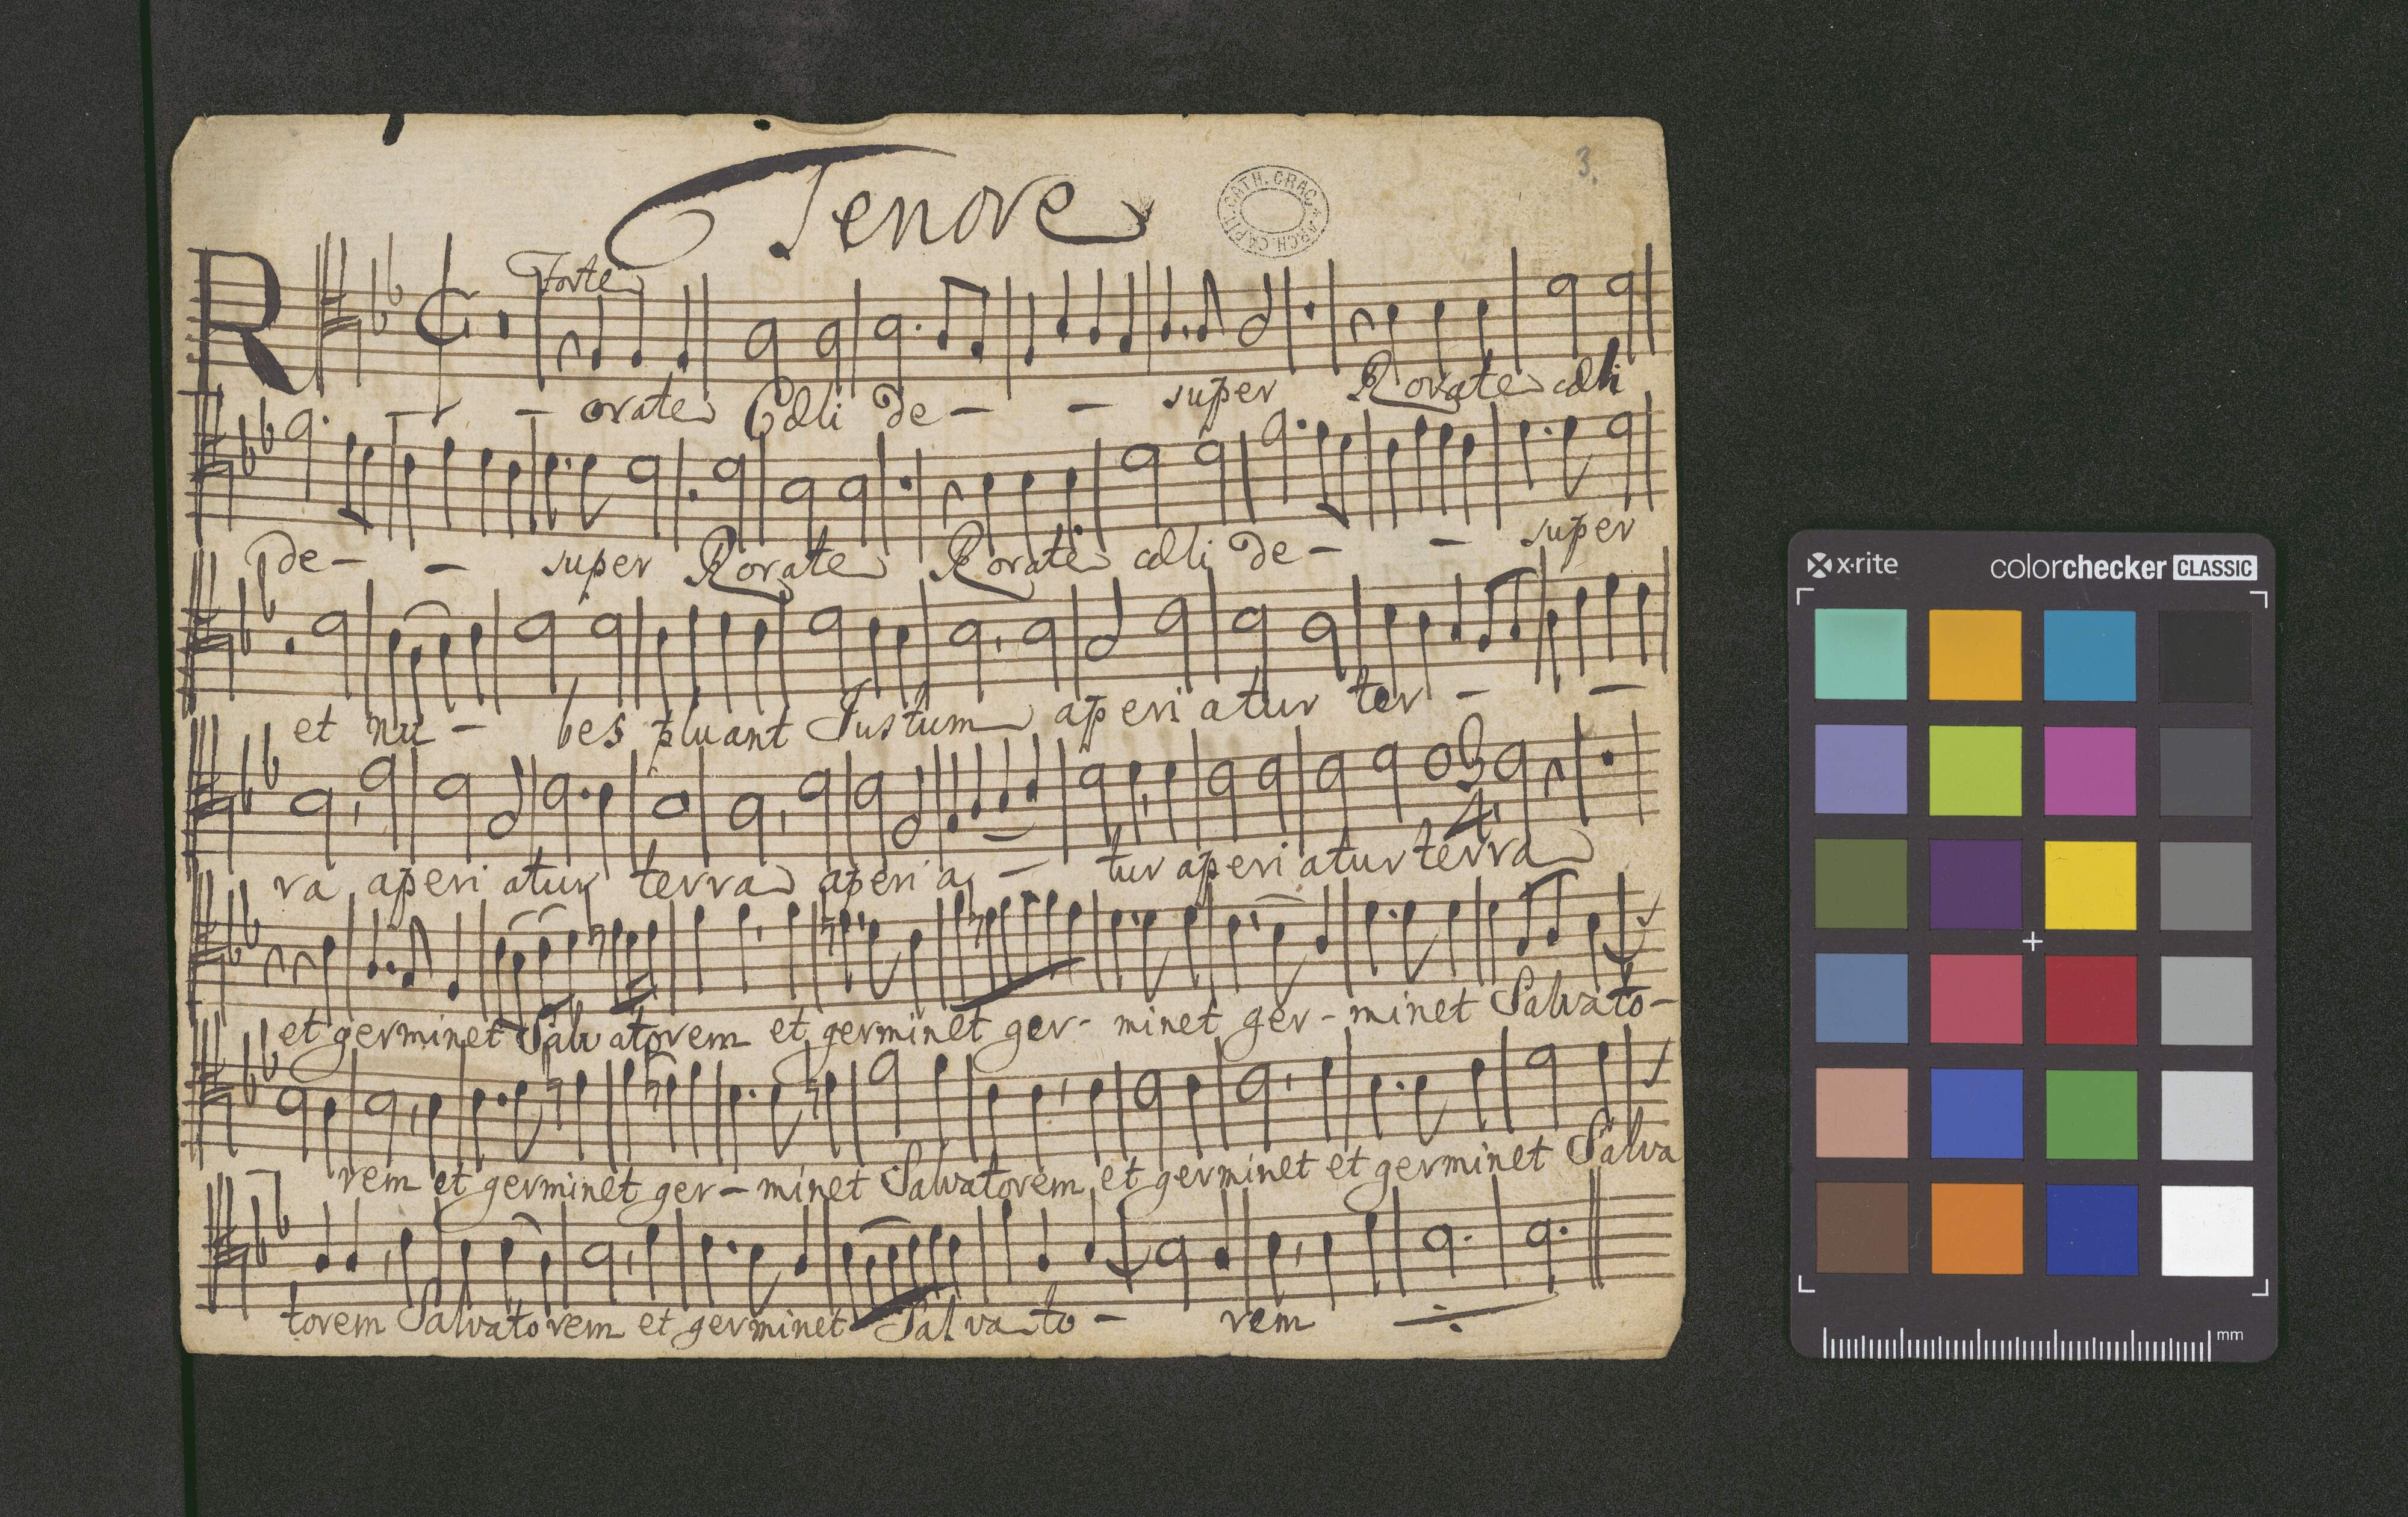 Tenore
ARCH. CAPIT. CATH. CRAC.
3.
Forte
R orate Cæli de - - super Rorate cæli
De - - super Rorate Rorate cæli de - - super
et nu - bes pluant Justum aperiatur ter - -
ra aperiatur terra aperia - tur aperiatur terra
3
4
et germinet Salvatorem et germinet ger - minet ger - minet Salvato -
rem et germinet ger - minet Salvatorem et germinet et germinet Salva
torem Salvatorem et germinet Salvato - rem
x-rite
colorchecker CLASSIC
mm